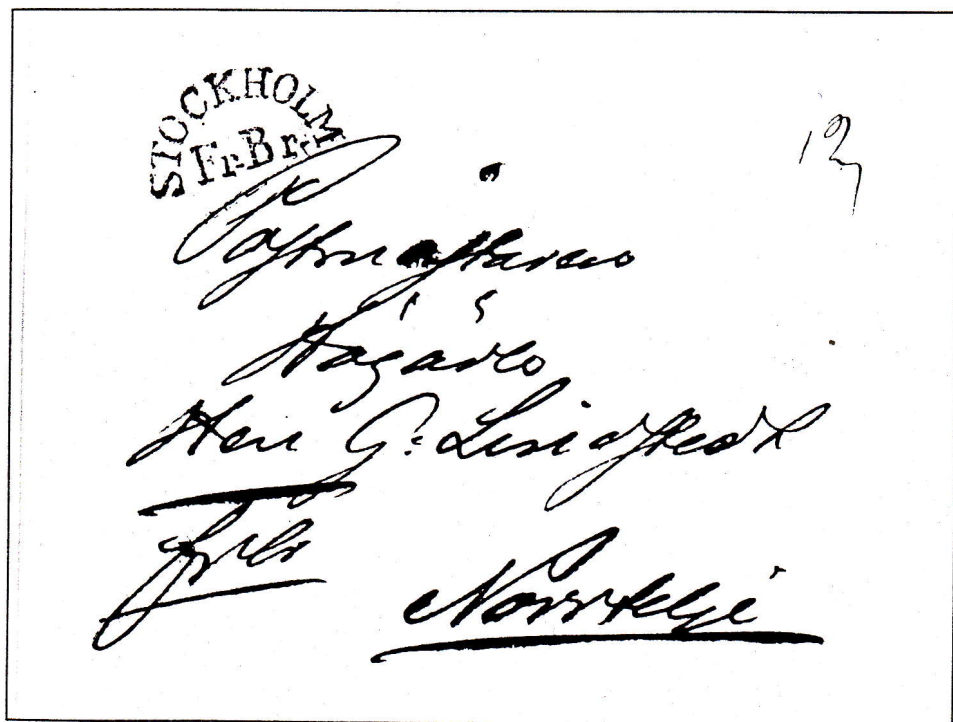 STOCKHOLM
Fr.Br.
12
Postmästaren
Herr G. Lindstedt
frbr
Norrtelje